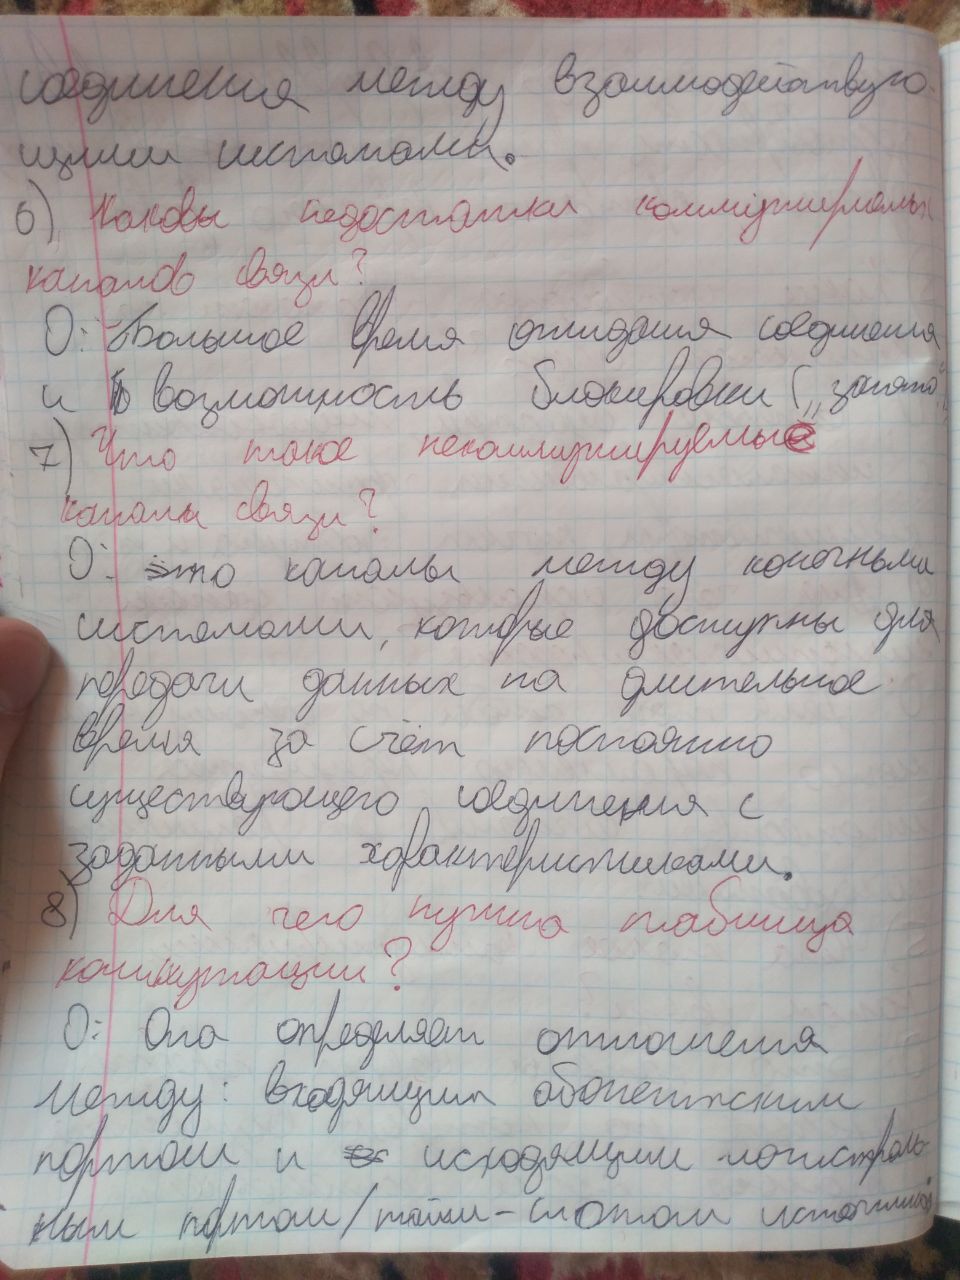 соединения между взаимодействую-
щими системами.
6) Каковы недостатки коммутируемых
каналов связи?
О: Большое время ожидания соединения
и возможность блокировки („занято“)
7) Что такое некоммутируемые
каналы связи?
О: это каналы между конечными
системами, которые доступны для
передачи данных на длительное
время за счёт постоянно
существующего соединения с
заданными характеристиками.
8) Для чего нужна таблица
коммутации?
О: Она определяет отношения
между: входящим абонентским
портом и исходящим магистраль-
ным портом/тайм-слотом источника